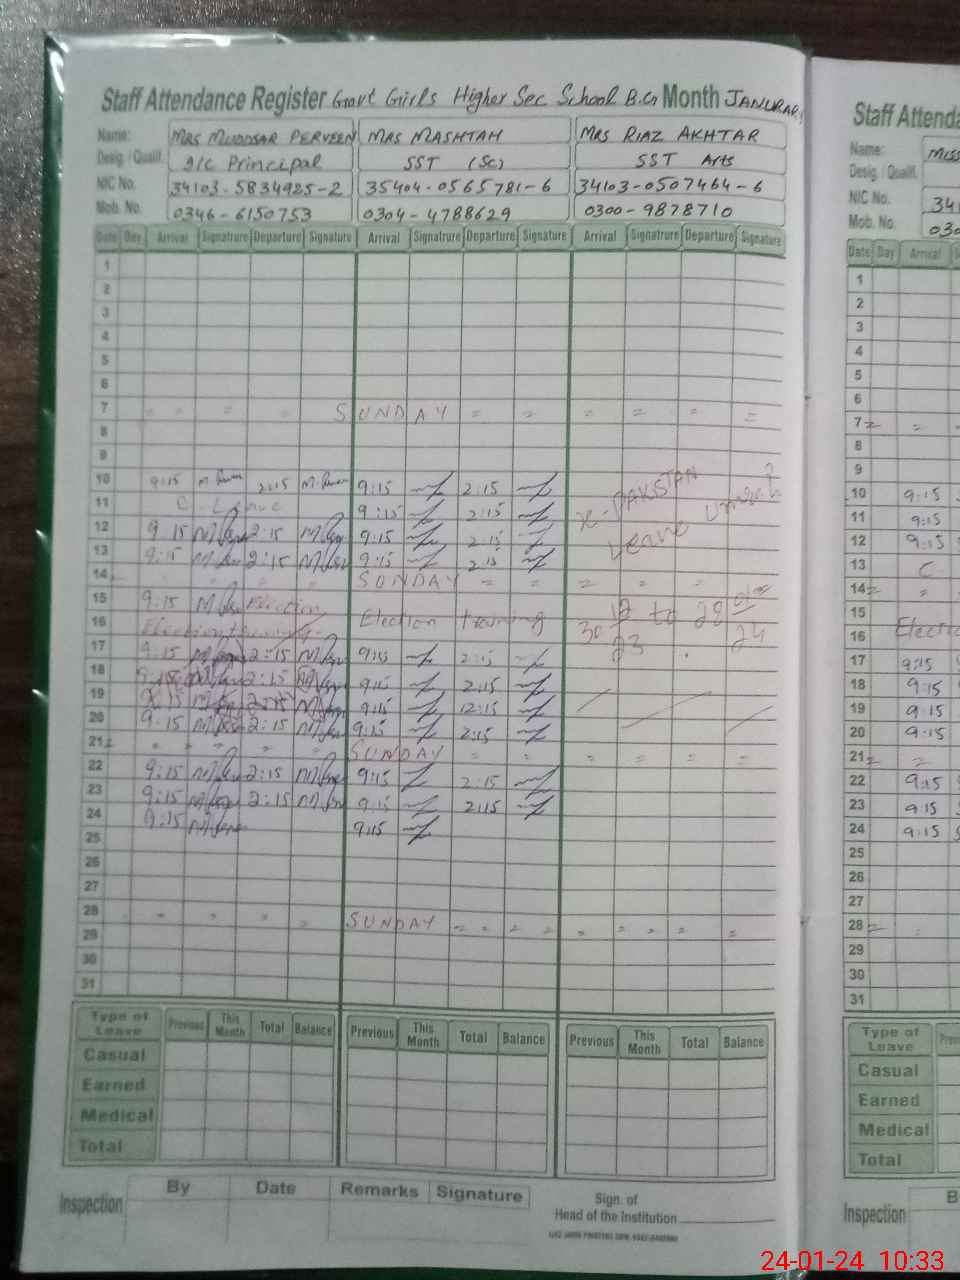 Staff Attendance Register Govt Girls Higher Sec School B.Cn Month JANURARY
Name: MRS MUDDSAR PERVEEN MRS MASHTAH MRS RIAZ AKHTAR
Desig. / Qualif. I/C Principal SST (Sc) SST Arts
NIC No. 34103-5834925-2 35404-0565781-6 34103-0507464-6
Mob. No. 0346-6150753 0304-4788629 0300-9878710
Date Day Arrival Signatrure Departure Signature Arrival Signatrure Departure Signature Arrival Signatrure Departure Signature
1
2
3
4
5
6
7 SUNDAY
8
9
10 9:15 2:15 9:15 2:15 X-PAKISTAN
11 C. Leave 9:15 2:15 Leave
12 9:15 2:15 9:15 2:15
13 9:15 2:15 9:15 2:15
14 SUNDAY
15 9:15 Election Election training 30 12/23 to 28
16 Election
17 9:15 2:15 9:15 2:15
18 9:15 2:15 9:15 2:15
19 9:15 12:15
20 9:15 2:15 9:15 2:15
21 SUNDAY
22 9:15 2:15 9:15 2:15
23 9:15 2:15 9:15 2:15
24 9:15 9:15
25
26
27
28 SUNDAY
29
30
31
Type of Leave Previous This Month Total Balance Previous This Month Total Balance Previous This Month Total Balance
Casual
Earned
Medical
Total
Inspection By Date Remarks Signature
Sign. of
Head of the Institution
Staff Attenda
Name: MISS
Desig. / Qualif.
NIC No. 341
Mob. No. 030
Date Day Arrival
1
2
3
4
5
6
7
8
9
10 9:15
11 9:15
12 9:15
13 C
14
15
16 Electi
17 9:15
18 9:15
19 9:15
20 9:15
21
22 9:15
23 9:15
24 9:15
25
26
27
28
29
30
31
Type of Leave
Casual
Earned
Medical
Total
Inspection
24-01-24 10:33